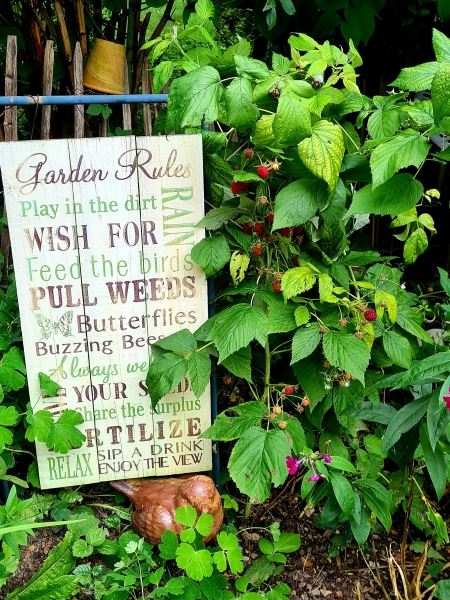 Garden Rules
Play in the dirt
WISH FOR RAIN
Feed the birds
PULL WEEDS
Butterflies
Buzzing Bees
Always we
YOUR
Share the surplus
RTILIZE
RELAX SIP A DRINK
ENJOY THE VIEW